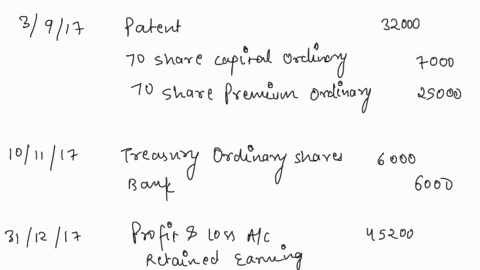 3/9/17 Patent 32000
To share capital Ordinary 7000
To share Premium Ordinary 25000
10/11/17 Treasury Ordinary shares 6000
Bank 6000
31/12/17 Profit & Loss A/c 45200
Retained Earning